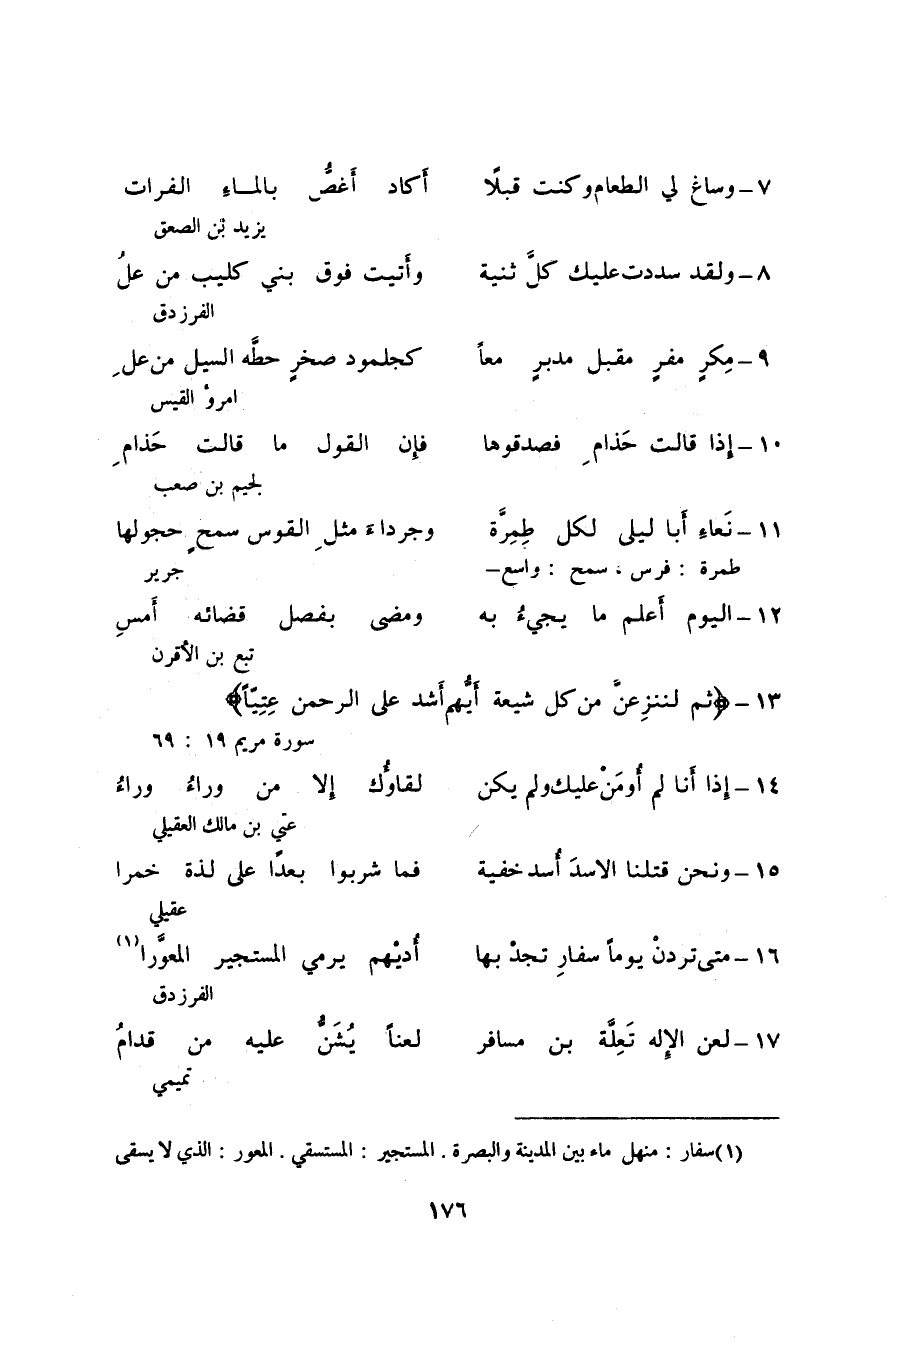 ٧ ــ وساغ لي الطعام وكنت قبلًا أكاد أغصُّ بالمــاء الفرات
يزيد بن الصعق
٨ ــ ولقد سددت عليك كلَّ ثنية وأتيت فوق بني كليب من علُ
الفرزدق
٩ ــ مِكرٍ مفرٍ مقبل مدبرٍ معاً كجلمود صخرٍ حطَّه السيل من علِ
امرؤ القيس
١٠ ــ إذا قالت حَذامِ فصدقوها فإن القول ما قالت حَذامِ
لجيم بن صعب
١١ ــ نَعاءِ أبا ليلى لكل طِمِرَّة وجرداءَ مثلِ القوس سمحٍ حجولها
طمرة : فرس ، سمح : واسع ــ جرير
١٢ ــ اليوم أعلم ما يجيءُ به ومضى بفصل قضائه أمسِ
تبع بن الأقرن
١٣ ــ ﴿ثم لننزِعنَّ من كل شيعة أيُّهم أشد على الرحمن عِتِيّاً﴾
سورة مريم ١٩ : ٦٩
١٤ ــ إذا أنا لم أُومَنْ عليك ولم يكن لقاؤُك إلا من وراءُ وراءُ
عتي بن مالك العقيلي
١٥ ــ ونحن قتلنا الاسدَ أُسد خفية فما شربوا بعدًا على لذة خمرا
عقيلي
١٦ ــ متى تردنْ يوماً سفارِ تجدْ بها أُديْهم يرمي المستجير المعوَّرا(١)
الفرزدق
١٧ ــ لعن الإِله تَعِلَّة بن مسافر لعناً يُشَنُّ عليه من قدامُ
تميمي
(١) سفار : منهل ماء بين المدينة والبصرة . المستجير : المستسقي . المعور : الذي لا يسقى
١٧٦